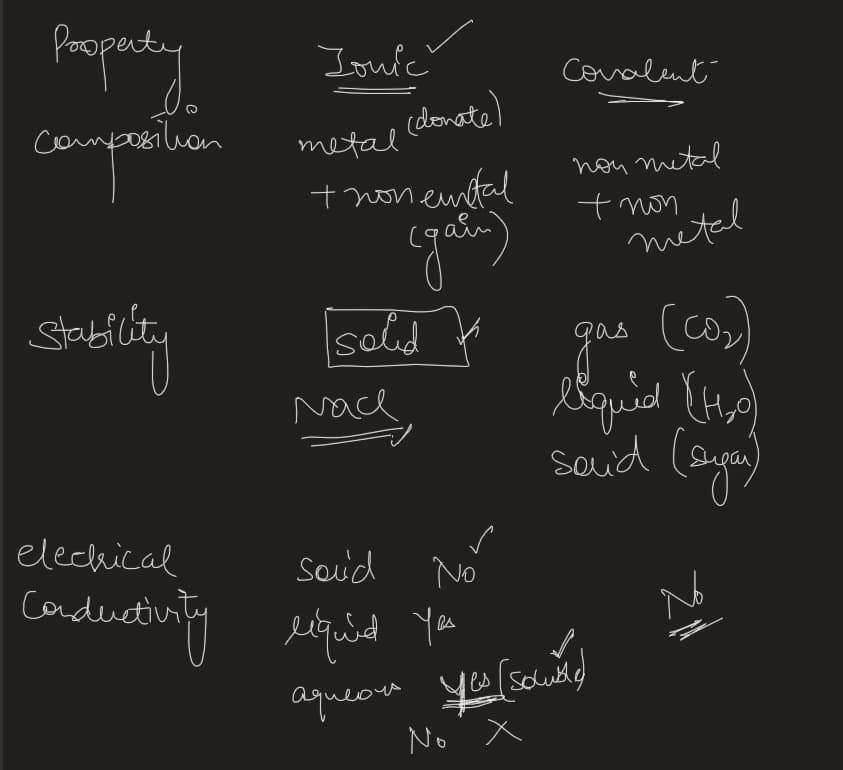 Property Ionic ✓ Covalent
Composition metal (donate) non metal
+ non emtal + non
(gain) metal
Stability solid ✓ gas (CO₂)
NaCl liquid (H₂O)
solid (sugar)
electrical solid No ✓
Conductivity liquid Yes No
aqueous Yes (soluble) ✓
No X